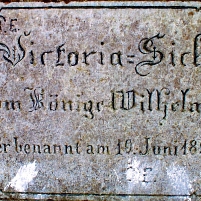 Victoria=Sic
om Könige Wilhelm
er benannt am 19. Juni 18